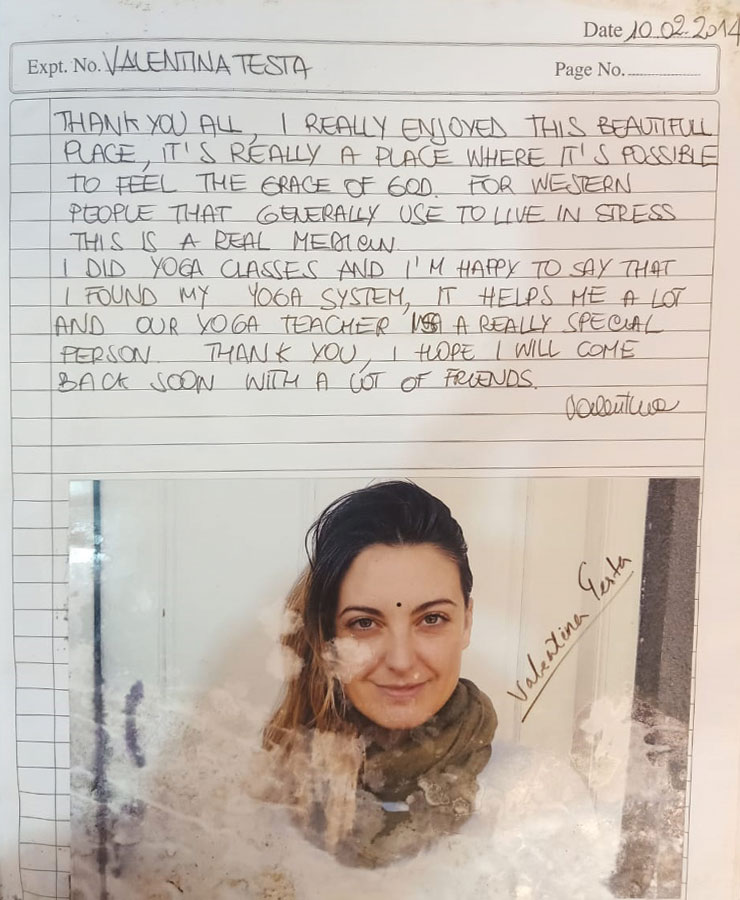 Date 10.02.2014
Expt. No. VALENTINA TESTA
Page No.
THANK YOU ALL, I REALLY ENJOYED THIS BEAUTIFULL
PLACE, IT'S REALLY A PLACE WHERE IT'S POSSIBLE
TO FEEL THE GRACE OF GOD. FOR WESTERN
PEOPLE THAT GENERALLY USE TO LIVE IN STRESS
THIS IS A REAL
I DID YOGA CLASSES AND I'M HAPPY TO SAY THAT
I FOUND MY YOGA SYSTEM, IT HELPS ME A LOT
AND OUR YOGA TEACHER A REALLY SPECIAL
PERSON. THANK YOU, I HOPE I WILL COME
BACK SOON WITH A LOT OF FRIENDS.
Valentina
Valentina Testa